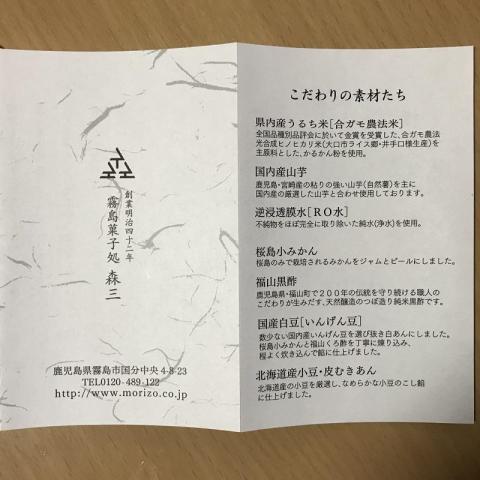 創業明治四十二年
霧島菓子処 森三
鹿児島県霧島市国分中央4-8-23
TEL0120-489-122
http://www.morizo.co.jp
こだわりの素材たち
県内産うるち米[合ガモ農法米]
全国品種別品評会に於いて金賞を受賞した、合ガモ農法
光合成ヒノヒカリ米(大口市ライス郷・井手口様生産)を
主原料とした、かるかん粉を使用。
国内産山芋
鹿児島・宮崎産の粘りの強い山芋(自然薯)を主に
国内産の厳選した山芋と合わせ使用しております。
逆浸透膜水[RO水]
不純物をほぼ完全に取り除いた純水(浄水)を使用。
桜島小みかん
桜島のみで栽培されるみかんをジャムとピールにしました。
福山黒酢
鹿児島県・福山町で200年の伝統を守り続ける職人の
こだわりが生みだす、天然醸造のつぼ造り純米黒酢です。
国産白豆[いんげん豆]
数少ない国内産いんげん豆を選び抜き白あんにしました。
桜島小みかんと福山くろ酢を丁寧に練り込み、
程よく炊き込んで餡に仕上げました。
北海道産小豆・皮むきあん
北海道産の小豆を厳選し、なめらかな小豆のこし餡
に仕上げました。